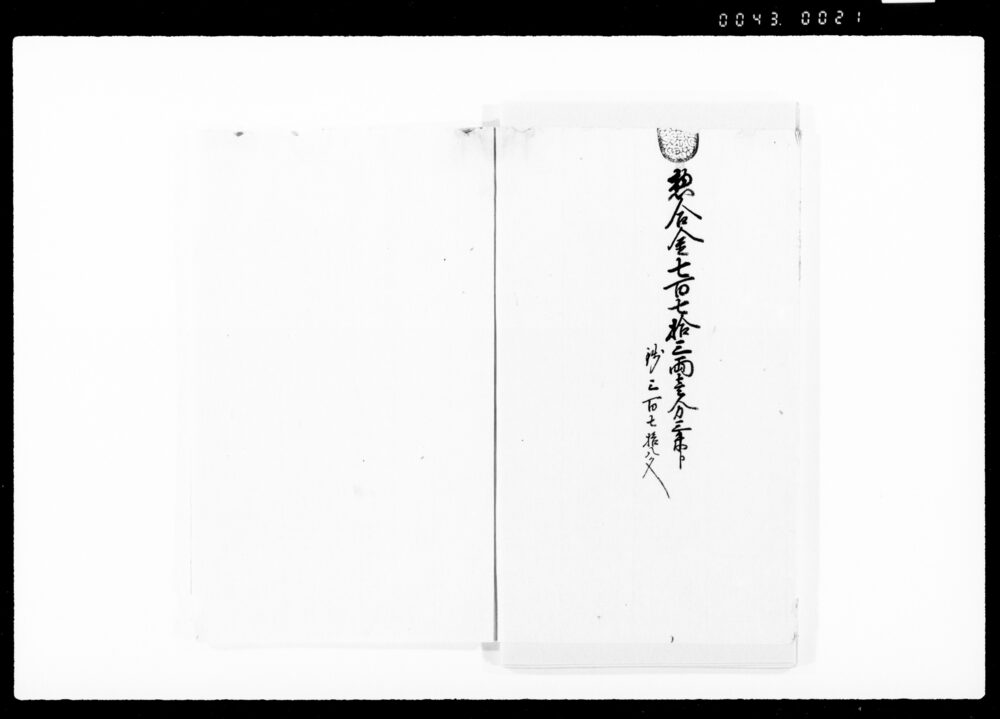 0043. 0021
惣合金七百七拾三両壱分三朱ト
銭三百七拾八文